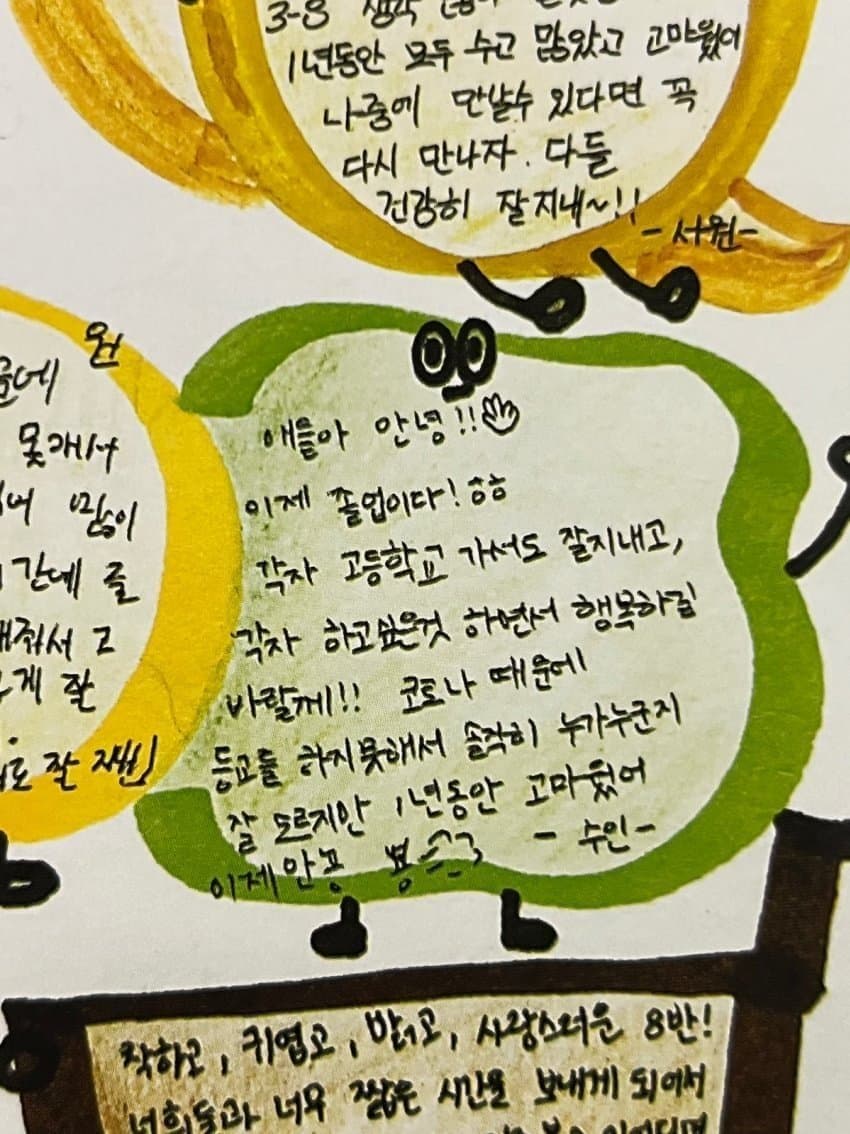 3-8 생각
1년동안 모두 수고 많았고 고마웠어
나중에 만날수 있다면 꼭
다시 만나자. 다들
건강히 잘지내~!!
-서원-
원
못해서
많이
잘
애들아 안녕!!
이제 졸업이다! ㅎㅎ
각자 고등학교 가서도 잘지내고,
각자 하고싶은것 하면서 행복하길
바랄께!! 코로나 때문에
등교를 하지못해서 솔직히 누가누군지
잘 모르지만 1년동안 고마웠어
이제 안녕 뿅 -수인-
착하고, 귀엽고, 밝고, 사랑스러운 8반!
너희들과 너무 짧은 시간을 보내게 되어서